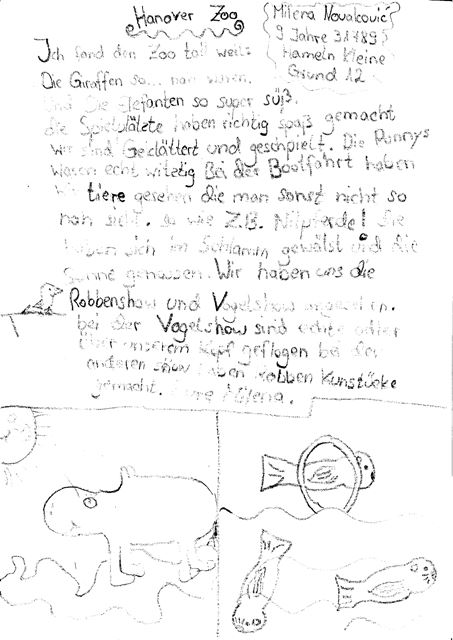 Hanover Zoo
Milena Novakovic
9 Jahre 31789
Hameln Kleine
Grund 12
Ich fand den Zoo toll weil:
Die Giraffen so... nah waren.
Und Die Elefanten so super süß.
die Spielplätzte haben richtig spaß gemacht
wir sind Geklättert und geschpielt. Die Ponnys
waren echt witztig Bei der Bootfahrt haben
wir tiere gesehen die man sonst nicht so
nah sieht. So wie Z.B. Nilpferde! Sie
haben sich im Schlamm gewälst und die
Sonne genossen. Wir haben uns die
Robbenshow und Vogelshow
bei der Vogelshow sind echte
über unserem Kopf geflogen bei der
anderen show haben Robben Kunstücke
gemacht. Eure Milena.